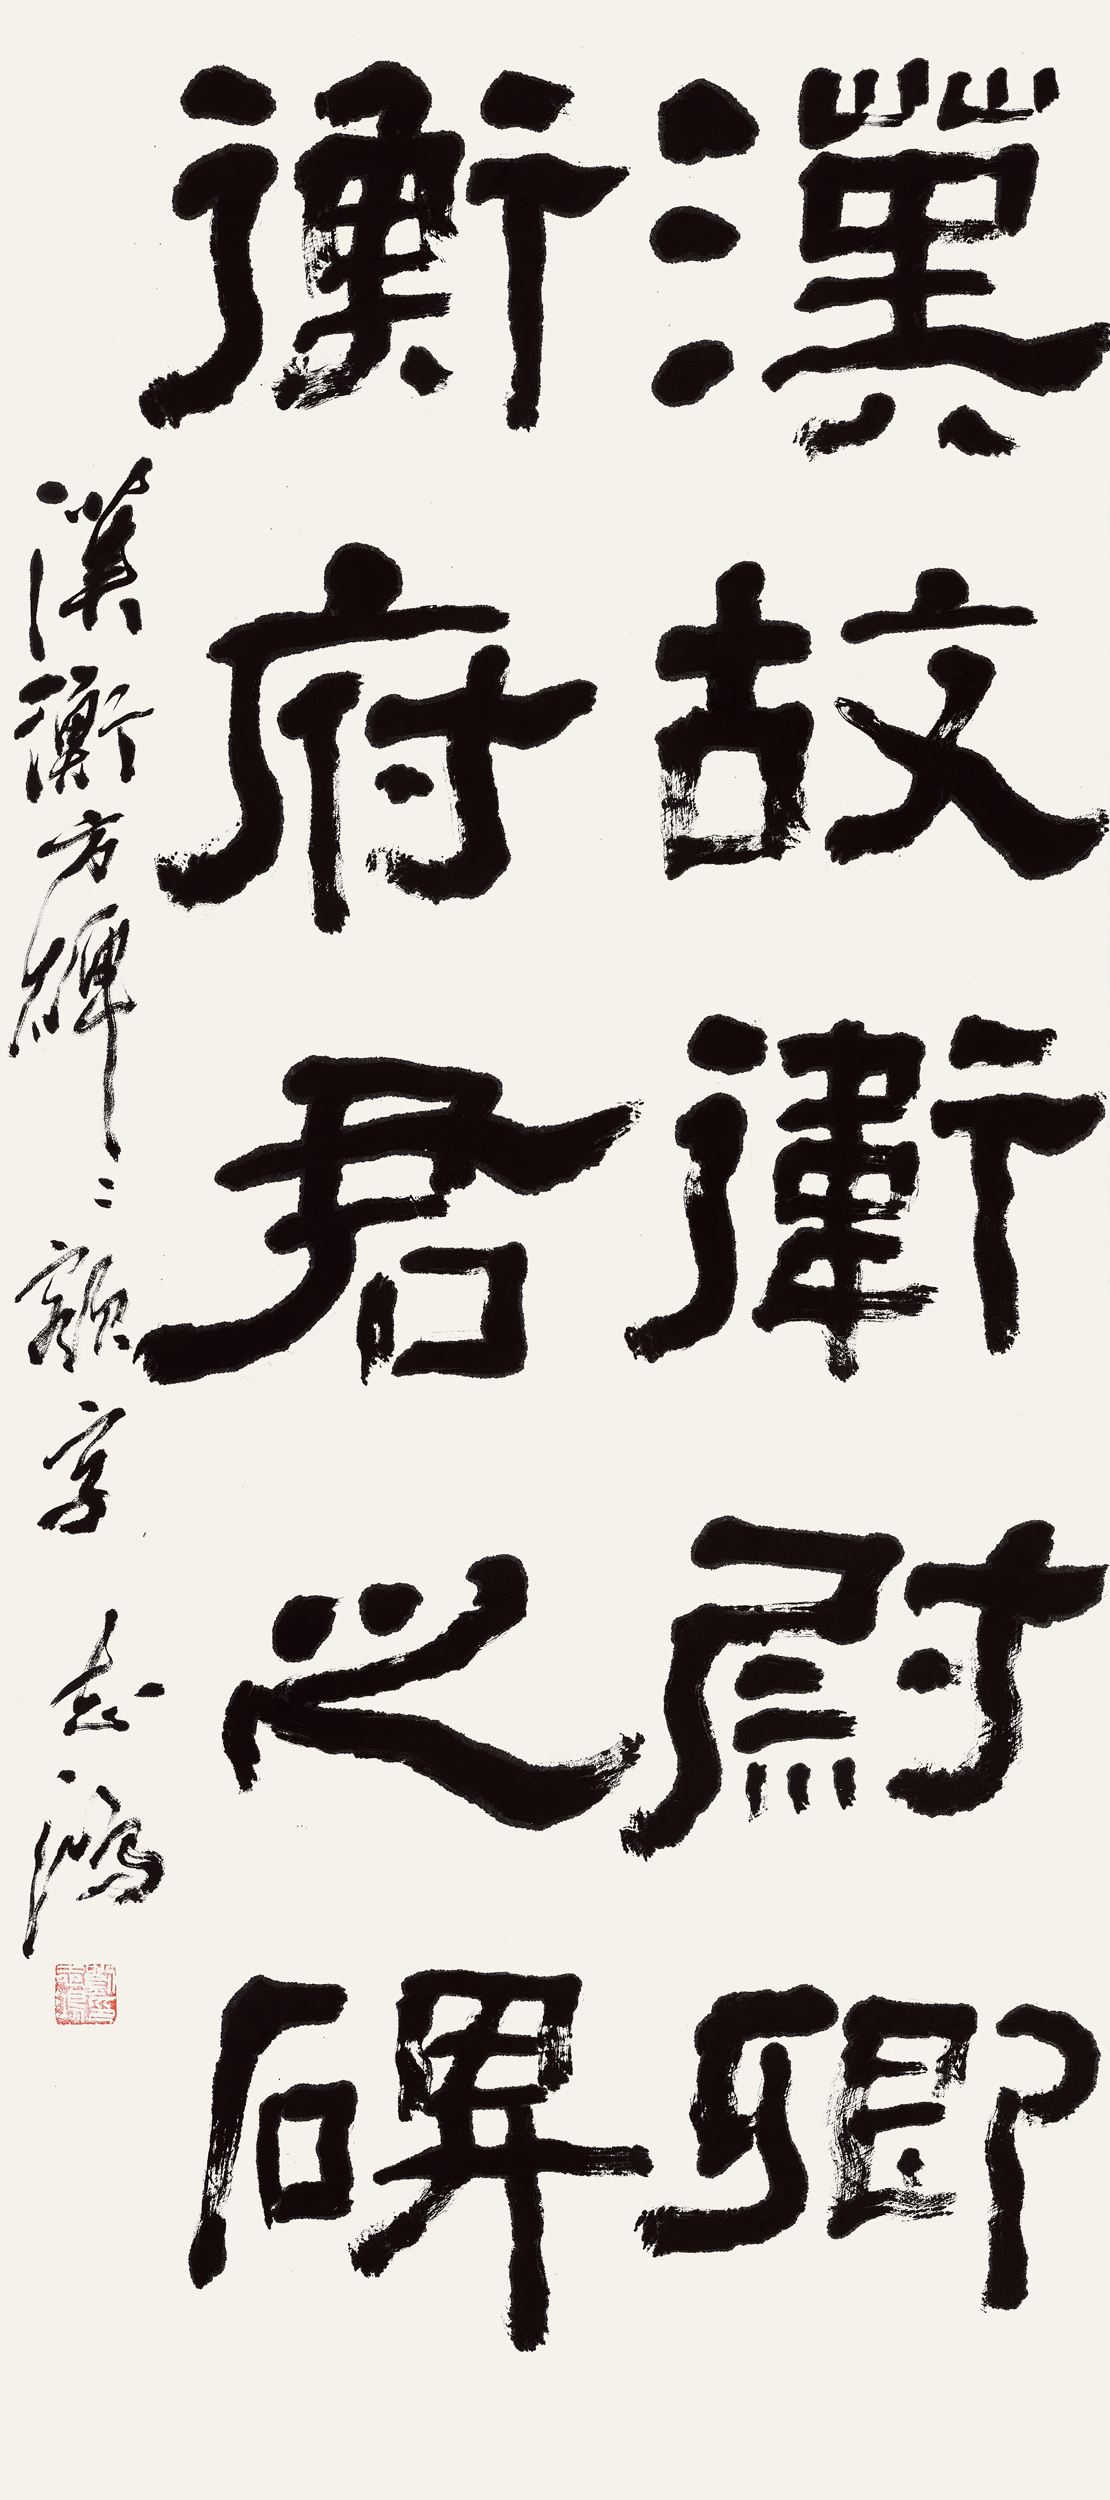 漢故衛尉卿
衡府君之碑
漢衡方碑二額字 志鴻